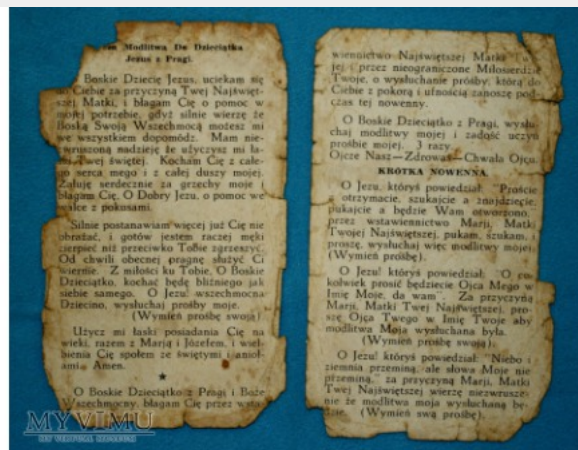 Modlitwa Do Dzieciątka
Jezus z Pragi.
Boskie Dziecię Jezus, uciekam się
do Ciebie za przyczyną Twej Najświęt-
szej Matki, i błagam Cię o pomoc w
mojej potrzebie, gdyż silnie wierzę że
Boską Swoją Wszechmocą możesz mi
we wszystkiem dopomódz. Mam nie-
zwruszoną nadzieję że użyczysz mi ła-
Twej świętej. Kocham Cię z całe-
go serca mego i z całej duszy mojej.
Żałuję serdecznie za grzechy moje i
błagam Cię, O Dobry Jezu, o pomoc we
walce z pokusami.
Silnie postanawiam więcej już Cię nie
obrażać, i gotów jestem raczej męki
cierpieć niż przeciwko Tobie zgrzeszyć.
Od chwili obecnej pragnę służyć Ci
wiernie. Z miłości ku Tobie, O Boskie
Dzieciątko, kochać będę bliźniego jak
siebie samego. O Jezu! wszechmocna
Dziecino, wysłuchaj prośby moje.
(Wymień prośbę swoją)
Użycz mi łaski posiadania Cię na
wieki, razem z Marją i Józefem, i wiel-
bienia Cię społem ze świętymi i anioł-
ami. Amen.
★
O Boskie Dzieciątko z Pragi i Boże
Wszechmocny, błagam Cię przez wsta-
wiennictwo Najświętszej Matki Two-
jej, i przez nieograniczone Miłosierdzie
Twoje, o wysłuchanie prośby, którą do
Ciebie z pokorą i ufnością zanoszę pod-
czas tej nowenny.
O Boskie Dzieciątko z Pragi, wysłu-
chaj modlitwy mojej i zadość uczyń
prośbie mojej. 3 razy.
Ojcze Nasz—Zdrowaś—Chwała Ojcu.
KRÓTKA NOWENNA.
O Jezu, któryś powiedział: "Proście
a otrzymacie, szukajcie a znajdziecie,
pukajcie a będzie Wam otworzono,"
przez wstawiennictwo Marji, Matki
Twojej Najświętszej, pukam, szukam, i
proszę, wysłuchaj więc modlitwy mojej
(Wymień prośbę).
O Jezu! któryś powiedział: "O co-
kolwiek prosić będziecie Ojca Mego w
Imię Moje, da wam". Za przyczyną
Marji, Matki Twej Najświętszej, pro-
szę Ojca Twego w Imię Twoje aby
modlitwa Moja wysłuchana była.
(Wymień prośbę swoją).
O Jezu! któryś powiedział: "Niebo i
ziemnia przeminą, ale słowa Moje nie
przeminą," za przyczyną Marji, Matki
Twej Najświętszej wierzę niezwrusze-
nie że modlitwa moja wysłuchaną bę-
dzie. (Wymień swą prośbę).
MYVIMU
MY VIRTUAL MUSEUM